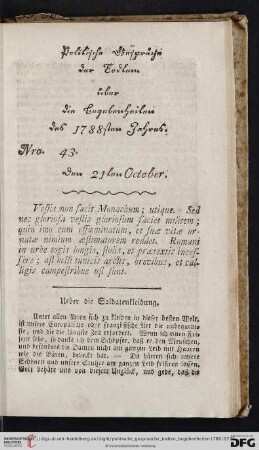 Politische Gespräche
der Todten
über
die Begebenheiten
des 1788sten Jahres.
Nro. 43.
Den 21ten October.
Vestis non facit Monachum; utique. — Sed
nec gloriosa vestis gloriosum faciet militem;
quin imo eum effœminatum, et suæ vitæ or-
natæ nimium æstimatorem reddet. Romani
in urbe togis longis, stolis, et prætextis incef-
sere; ast belli tunicis arctis, brevibus, et cal-
ligis campestribus usi sunt.
Ueber die Soldatenkleidung.
Unter allen Arten sich zu kleiden in dieser besten Welt,
ist unsere Europäische oder französische Art die unbequem-
ste, und die die längste Zeit erfordert. Wenn ich einen Fri-
seur sehe, so danke ich dem Schöpfer, daß er den Menschen,
und besonders die Damen nicht am ganzen Leib mit Haaren
wie die Bären, bedeckt hat. — Da hätten sich unsere
Schönen und unsere Stutzer am ganzen Leib frisiren lassen.
Gott behüte uns von diesem Unglück, und gebe, daß die
DFG